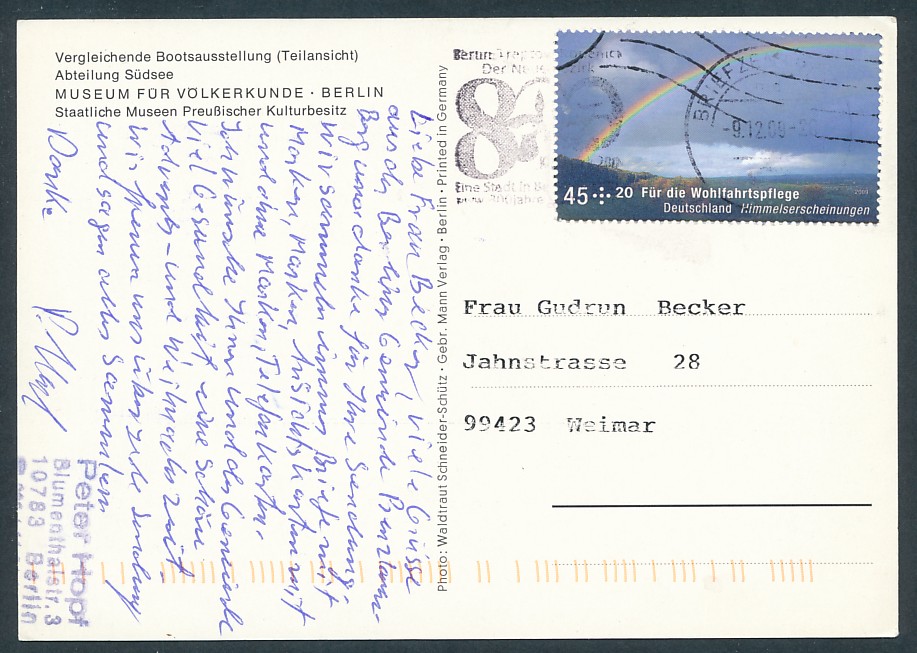 Vergleichende Bootsausstellung (Teilansicht)
Abteilung Südsee
MUSEUM FÜR VÖLKERKUNDE · BERLIN
Staatliche Museen Preußischer Kulturbesitz
Liebe Frau Becker, viele Grüsse
aus der Berliner Gemeinde Prenzlauer-
Berg und danke für Ihre Sendung.
Wir sammeln immer Briefe mit
Marken, Marken, Ansichtskarten mit
und ohne Marken, Telefonkarten.
Ich wünsche Ihnen und der Gemeinde
viel Gesundheit, eine schöne
Advents- und Weihnachtszeit.
Wir freuen uns über jede Sendung
und sagen allen Sammlern
Danke
P. Hopf
Peter Hopf
Blumenthalstr. 3
10783 Berlin
Photo: Waldtraut Schneider-Schütz · Gebr. Mann Verlag · Berlin · Printed in Germany
Berlin
Der Neue
Eine Stadt in
BRIEFZE
-9.12.09-
45 + 20 Für die Wohlfahrtspflege
2009
Deutschland Himmelserscheinungen
Frau Gudrun Becker
Jahnstrasse 28
99423 Weimar